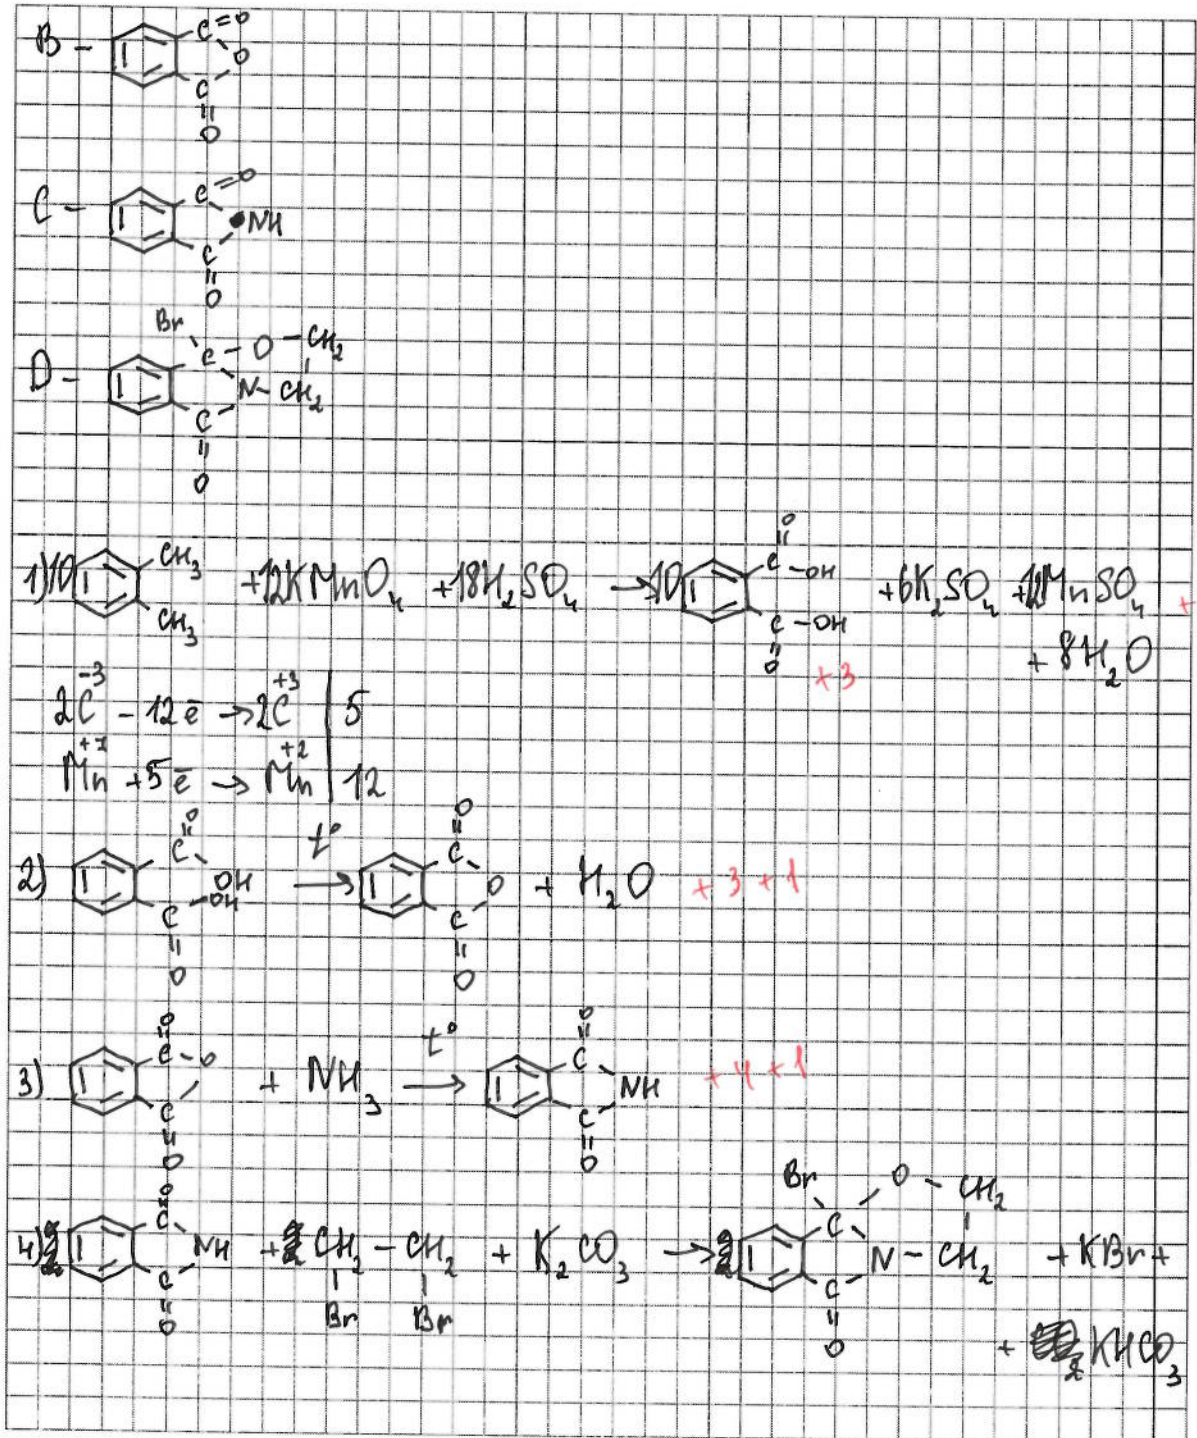 B - C=O
O
C
O
C - C=O
NH
C
O
D - Br C - O - CH₂
N - CH₂
C
O
1) 10 CH₃ CH₃ + 12KMnO₄ + 18H₂SO₄ → 10 O C - OH C - OH O + 6K₂SO₄ + 12MnSO₄ +
+3 + 8H₂O
2C⁻³ - 12ē → 2C⁺³ | 5
Mn⁺⁷ + 5ē → Mn⁺² | 12
2) O C OH OH C O t° → O C O C O + H₂O +3 +1
3) O C - O C O + NH₃ t° → O C NH C O +4 +1
4) O C NH C O + CH₂ - CH₂ Br Br + K₂CO₃ → Br C O - CH₂ N - CH₂ C O + KBr +
+ KHCO₃